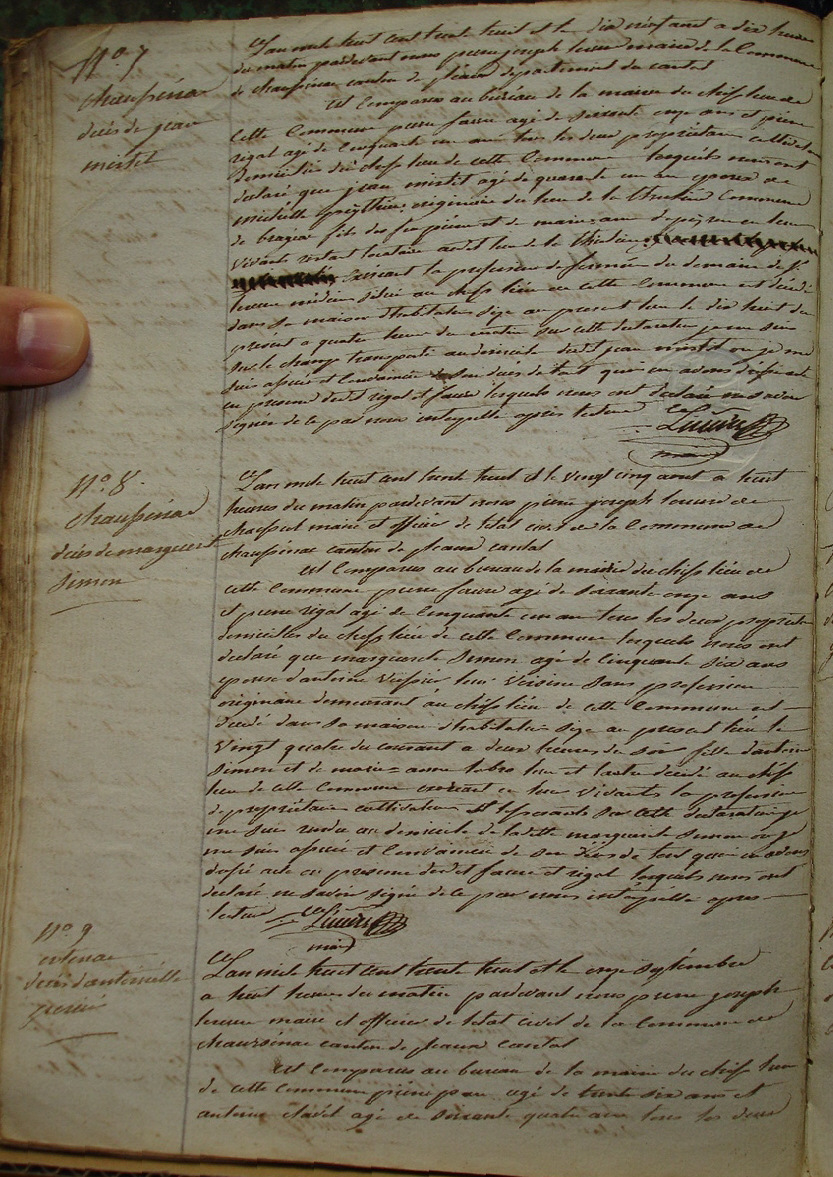 N° 7
chaussenac
décés de jean
mistet
L'an mile huit cent trente huit et le dix neuf aout a dix heures
du matin pardevant nous pierre joseph maire de la Commune
de chaussenac canton de pleaux departement du cantal
est Comparus au bureau de la mairie du cheflieu de
cette Commune pierre faure agé de soixante onze ans et pierre
rigal agé de Cinquante un ans tous les deux propriétaires cultivateurs
Domiciliés du cheflieu de cette Commune lesquels nous ont
déclaré que jean mistet agé de quarante un an epoux de
michelle originaire du lieu de la Commune
de brageac fils des feu pierre et de marie anne de leur
Vivants restant locataire audit lieu de la
Exerçant la profession de fermier du domaine de Sr
médecin situé au cheflieu de cette Commune est décédé
dans sa maison d'habitation sise au present lieu le dix huit du
présent a quatre heures du matin sur cette declaration je me suis
sur le champ transporté au domicile dudit jean mistet ou je me
suis assuré et Convaincu de son décés de tout quoi en avons dressé acte
en presence dudit rigal et faure lesquels nous ont declaré ne savoir
signer de ce par nous interpellé apres lecture
maire
N° 8.
chaussenac
décés de marguerite
Simon
L'an mile huit cent trente huit et le vingt cinq aout a huit
heures du matin pardevant nous pierre joseph de
maire et officier de l'état civil de la Commune de
chaussenac canton de pleaux cantal
est Comparus au bureau de la mairie du cheflieu de
cette Commune pierre faure agé de soixante onze ans
et pierre rigal agé de Cinquante un ans tous les deux propriétaires
domiciliés du cheflieu de cette Commune lesquels nous ont
declaré que marguerite Simon agé de Cinquante six ans
epouse d'antoine leur Voisine sans profession
originaire demeurant au cheflieu de cette Commune est
décédé dans sa maison d'habitation sise au present lieu le
Vingt quatre du courant a deux heures du soir fille d'antoine
Simon et de marie = anne l'un et l'autre décédé au chef
lieu de cette Commune exerçant en leur Vivants la profession
de propriétaires cultivateurs et sur cette declaration je
me suis rendu au domicile de ladite marguerite Simon ou je
me suis assuré et Convaincu de son décés de tout quoi en avons
dressé acte en presence dudit faure et rigal lesquels nous ont
déclaré ne savoir signé de ce par nous interpellé apres
lecture
maire
N° 9
décés d'antoinette
L'an mile huit cent trente huit et le onze septembre
a huit heures du matin pardevant nous pierre joseph
maire et officier de l'état civil de la Commune de
chaussenac canton de pleaux cantal
est Comparus au bureau de la mairie du chef lieu
de cette Commune pierre agé de trente six ans et
antoine agé de soixante quatre ans tous les deux